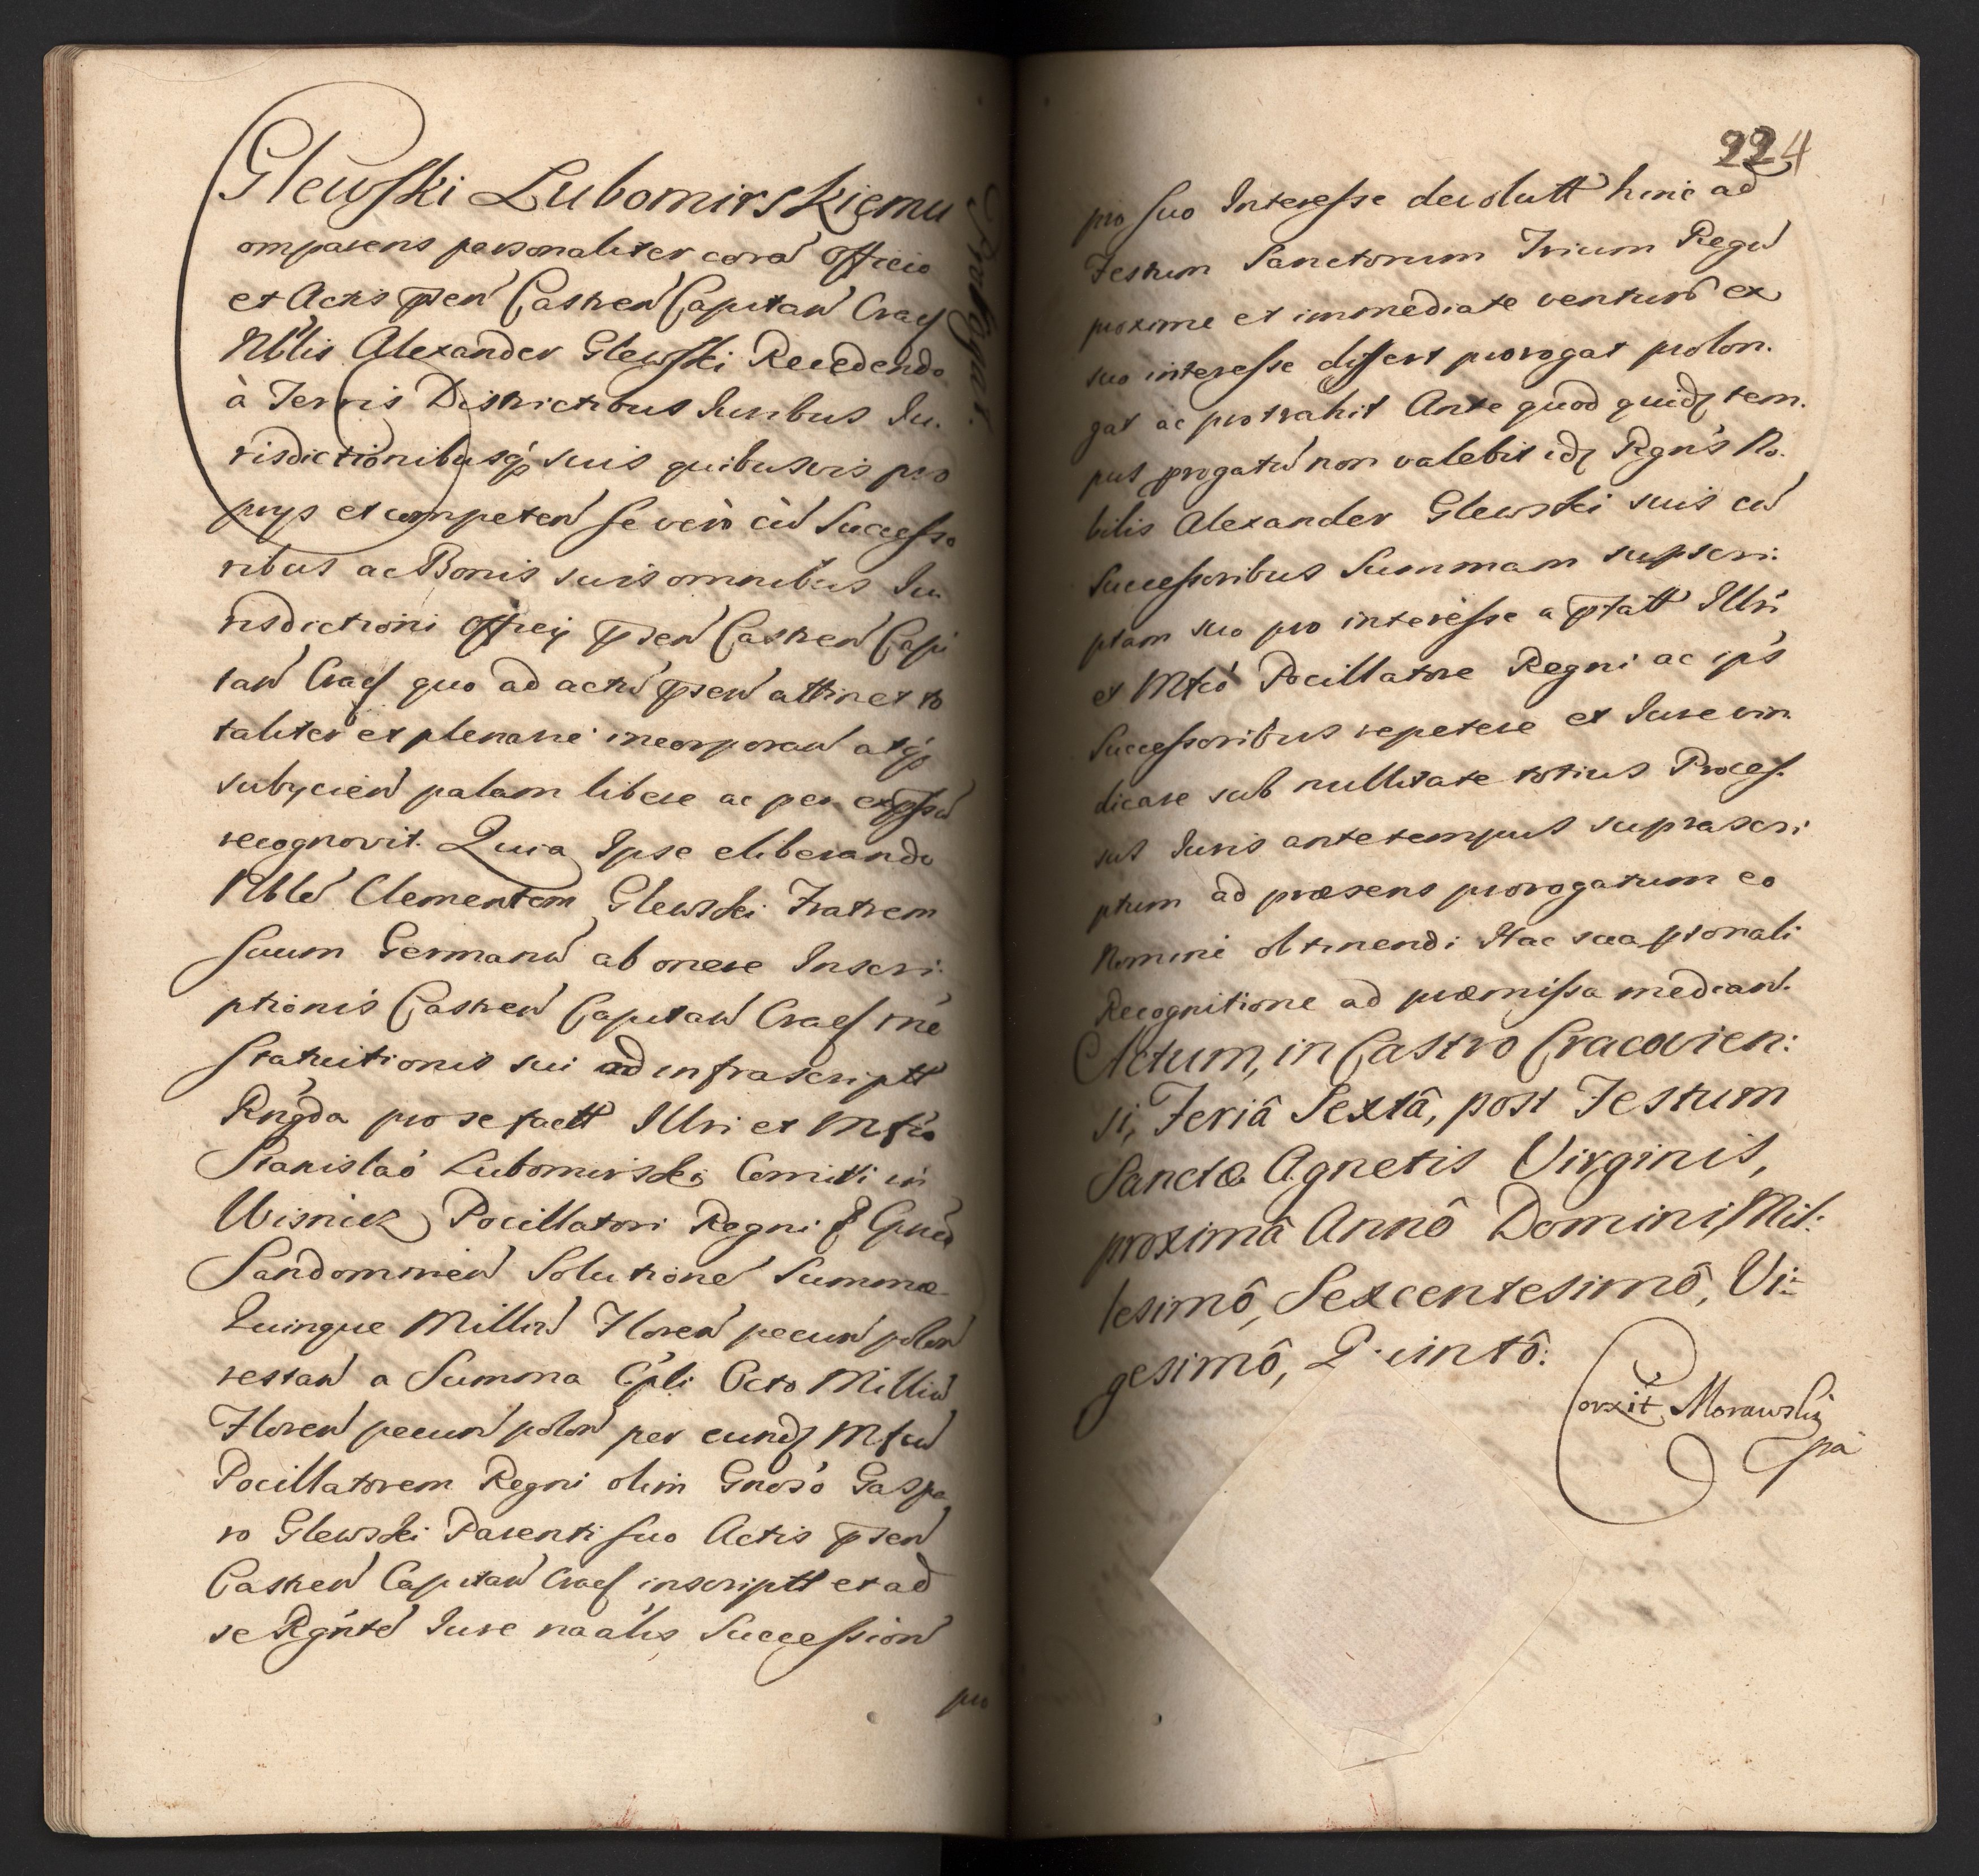 Glewski Lubomirskiemu
Comparens personaliter corā Officio
et Actis p̄sen̄ Castren̄ Capitan̄ Crac̄
Nblis Alexander Glewski Recedendo
à Terris Districtibus Iuribus Iu.
risdictionibusq́ȝ suis quibusvis pro
prys et competen̄ se verò cū Successo
ribus ac Bonis suis omnibus Iu
risdictioni Officy p̄sen̄ Castren̄ Capi
tan̄ Crac̄ quo ad actū p̄sen̄ attinet to
taliter et plenarie incorporan̄ atq́ȝ
subycien̄ palam libere ac per exp̄ssū
recognovit. Quia Ipse eliberando
Nblē Clementem Glewski Fratrem
suum Germanū ab onere Inscri
ptionis Castren̄ Capitan̄ Crac̄ rn̄e
statuitionis sui ad infrascriptt
Rngda pro se factt Illri et Mfco
Stanislaó Lubomirski Comiti in
Wisnicz Pocillatori Regni & Gn̄ca
Sandomirien̄ Solutionē Summæ
Quinque Milliū Floren̄ pecun̄ polon̄
restan̄ a Summa Cp̄li Octo Milliū
Floren̄ pecun̄ polon̄ per eundȝ Mfcū
Pocillatorem Regni olim Gnoso Gaspa
ro Glewski Parenti suo Actis p̄sen̄
Castren̄ Capitan̄ Crac̄ inscriptt et ad
se Rgn̄tē Iure naālis Succession̄
pro
Prorogat.
224
pro suo Interesse devolutt hinc ad
Festum Sanctorum Trium Regū
proxime et immediate venturū ex
suo interesse differt prorogat prolon.
gat ac protrahit Ante quod quidȝ tem.
pus prrogatū non valebit idȝ Rgn̄s No.
bilis Alexander Glewski suis cū
Successoribus Summam supscri:
ptam suo pro interesse a p̄fatt Illri
et Mfcó Pocillatore Regni ac ip̄s
Successoribus repetere et Iure vin
dicare sub nullitate totius Proces.
sus Iuris ante tempus suprascri
ptum ad præsens prorogatum eo
Nomine obtinendi Hac sua p̄sonali
Recognitione ad præmissa median̄.
Actum, in Castro Cracovien:
si, Feriâ Sextâ, post Festum
Sanctæ Agnetis Virginis,
proximâ Annô Domini Mil:
lesimô, Sexcentesimô, Vi:
gesimô, Quintô:
Corxit Morawski
mpa